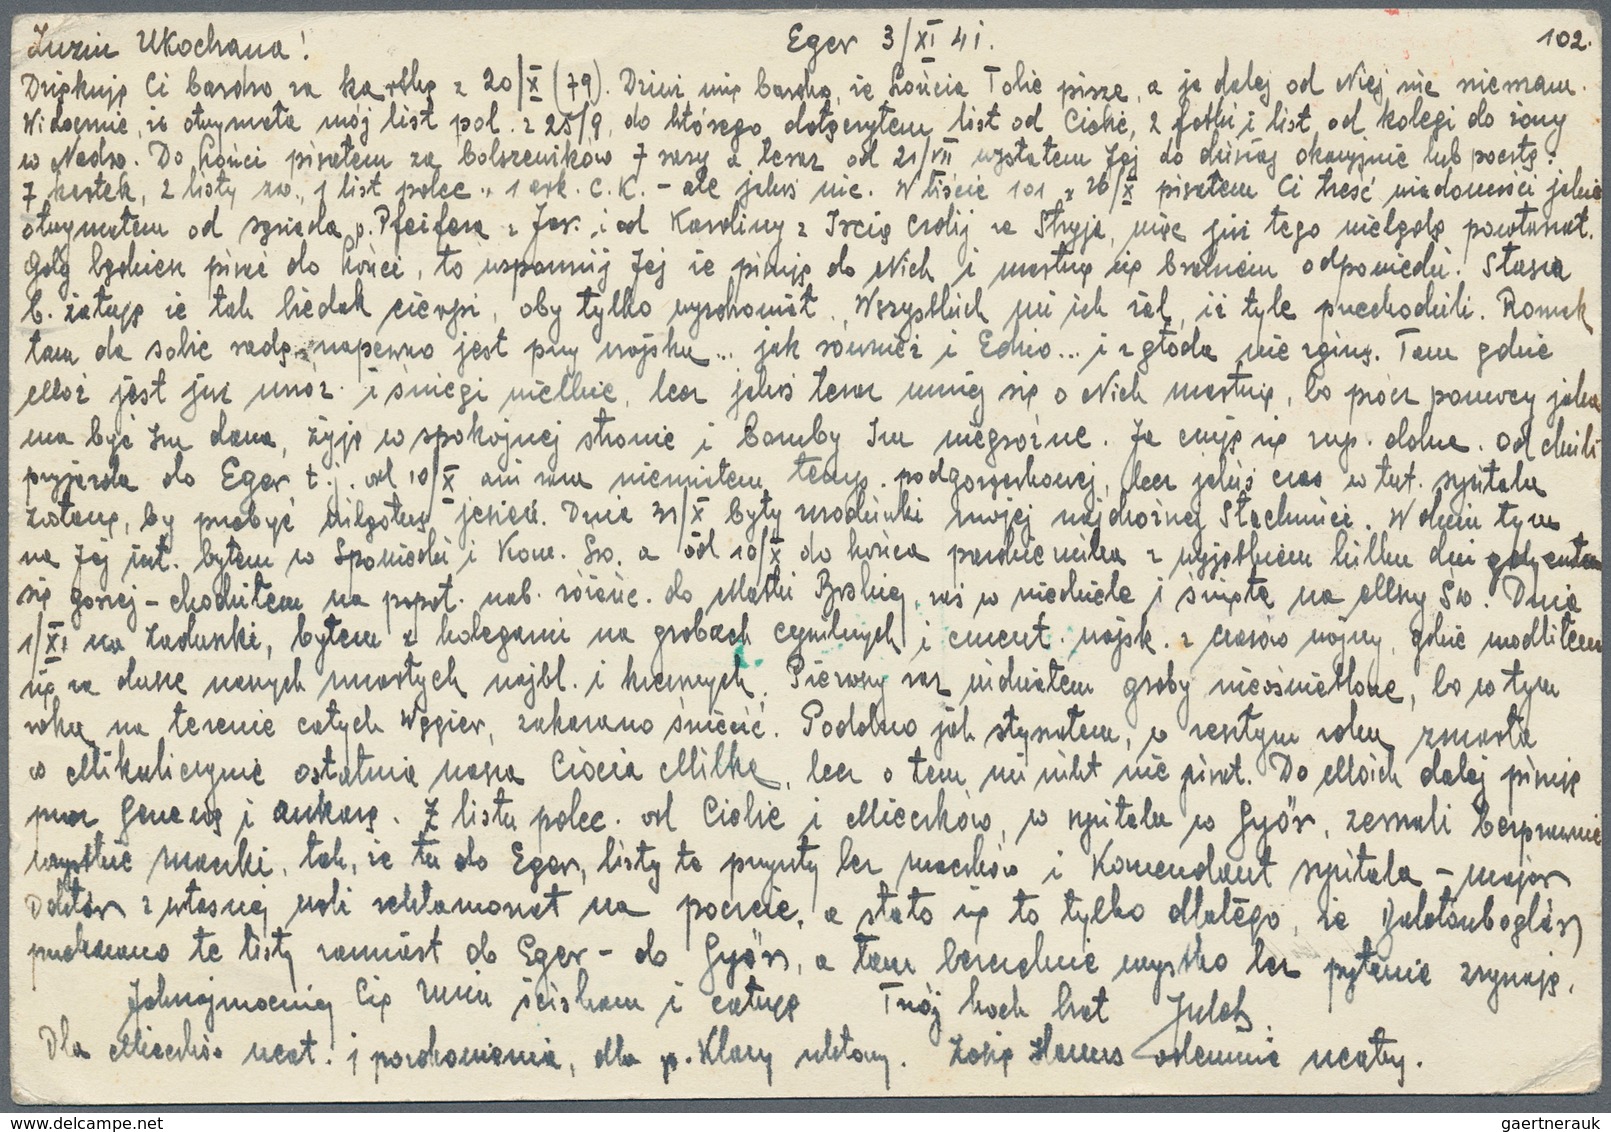 Luziu Ukochana! Eger 3/XI 41. 102.
Dziękuję Ci bardzo za kartkę z 20/X (79). Dziwi mię bardzo, że Tobie pisze, a ja dalej od Niej nic niemam.
Widocznie, że otrzymała mój list pol. z 25/9, do którego dołączyłem list od Ciebie, 2 fotki i list od kolegi do żony
w Nadw. Do pisałem za bolszewików 7 razy a teraz od 21/VII wysłałem Jej do dzisiaj okazyjnie lub pocztą:
7 kartek, 2 listy zw., 1 list polec., 1 ark. C.K. – ale jakoś nic. W liście 101 z 26/X pisałem Ci treść wiadomości jakie
otrzymałem od sąsiada p. Pfeifera z Jar. i od Karoliny z za Stryja, więc już tego niebędę powtarzał.
Gdy będziesz pisać do, to wspomnij Jej że piszę do Nich i martwię się brakiem odpowiedzi. Stasia
b. żałuję że tak biedak cierpi, oby tylko wyzdrowiał. Wszystkich mi ich żal, iż tyle przechodzili. Romek
tam da sobie radę, napewno jest przy wojsku... jak również i Edzio... i z głodu nie zginą. Tam gdzie
jest już mróz i śniegi wielkie, lecz jakoś teraz mniej się o Nich martwię, bo prócz pomocy jaka
ma być Im dana, żyją w spokojnej stronie i bomby Im niegroźne. Ja czuję się zup. dobrze. Od chwili
przyjazdu do Eger t.j. od 10/X ani razu niemiałem temp. podgorączkowej, lecz jakiś czas w tut. szpitalu
zostanę, by przebyć wilgotną jesień. Dnia 31/X były urodzinki mojej najdroższej. W dniu tym
na Jej int. byłem w Spowiedzi i Kom. Św. a od 10/X do końca października z wyjątkiem kilku dni gdy czułem
się gorzej – chodziłem na popoł. nab. różańc. do Matki Boskiej, zaś w niedziele i święta na Mszy Św. Dnia
1/XI na Zaduszki, byłem z kolegami na grobach cywilnych i cment. wojsk. z czasów wojny, gdzie modliłem
się za dusze naszych zmarłych najbl. i krewnych. Pierwszy raz widziałem groby nieoświetlone, bo w tym
roku na terenie całych Węgier, zakazano świecić. Podobno jak słyszałem, w zeszłym roku zmarła
w Mikuliczynie ostatnia nasza Ciocia Milka, lecz o tem mi nikt nie pisał. Do Moich dalej piszę
przez Genewę i Ankarę. Z listu polec. od Ciebie i Miecków, w szpitalu w Győr, zerwali bezprawnie
wszystkie znaczki, tak, że tu do Eger, listy te przyszły bez znaczków i Komendant szpitala – major
Doktór z własnej woli reklamował na poczcie, a stało się to tylko dlatego, że Balatonboglár
przekazano te listy zamiast do Eger – do Győr, a tam bezczelnie wszystko bez pytania zrywają.
Jaknajmocniej Cię Luziu ściskam i całuję Twój koch. brat Julek
Dla Miecków ucał. i pozdrowienia, dla p. Klary ukłony. Zosię odemnie ucałuj.
gaertnerauk